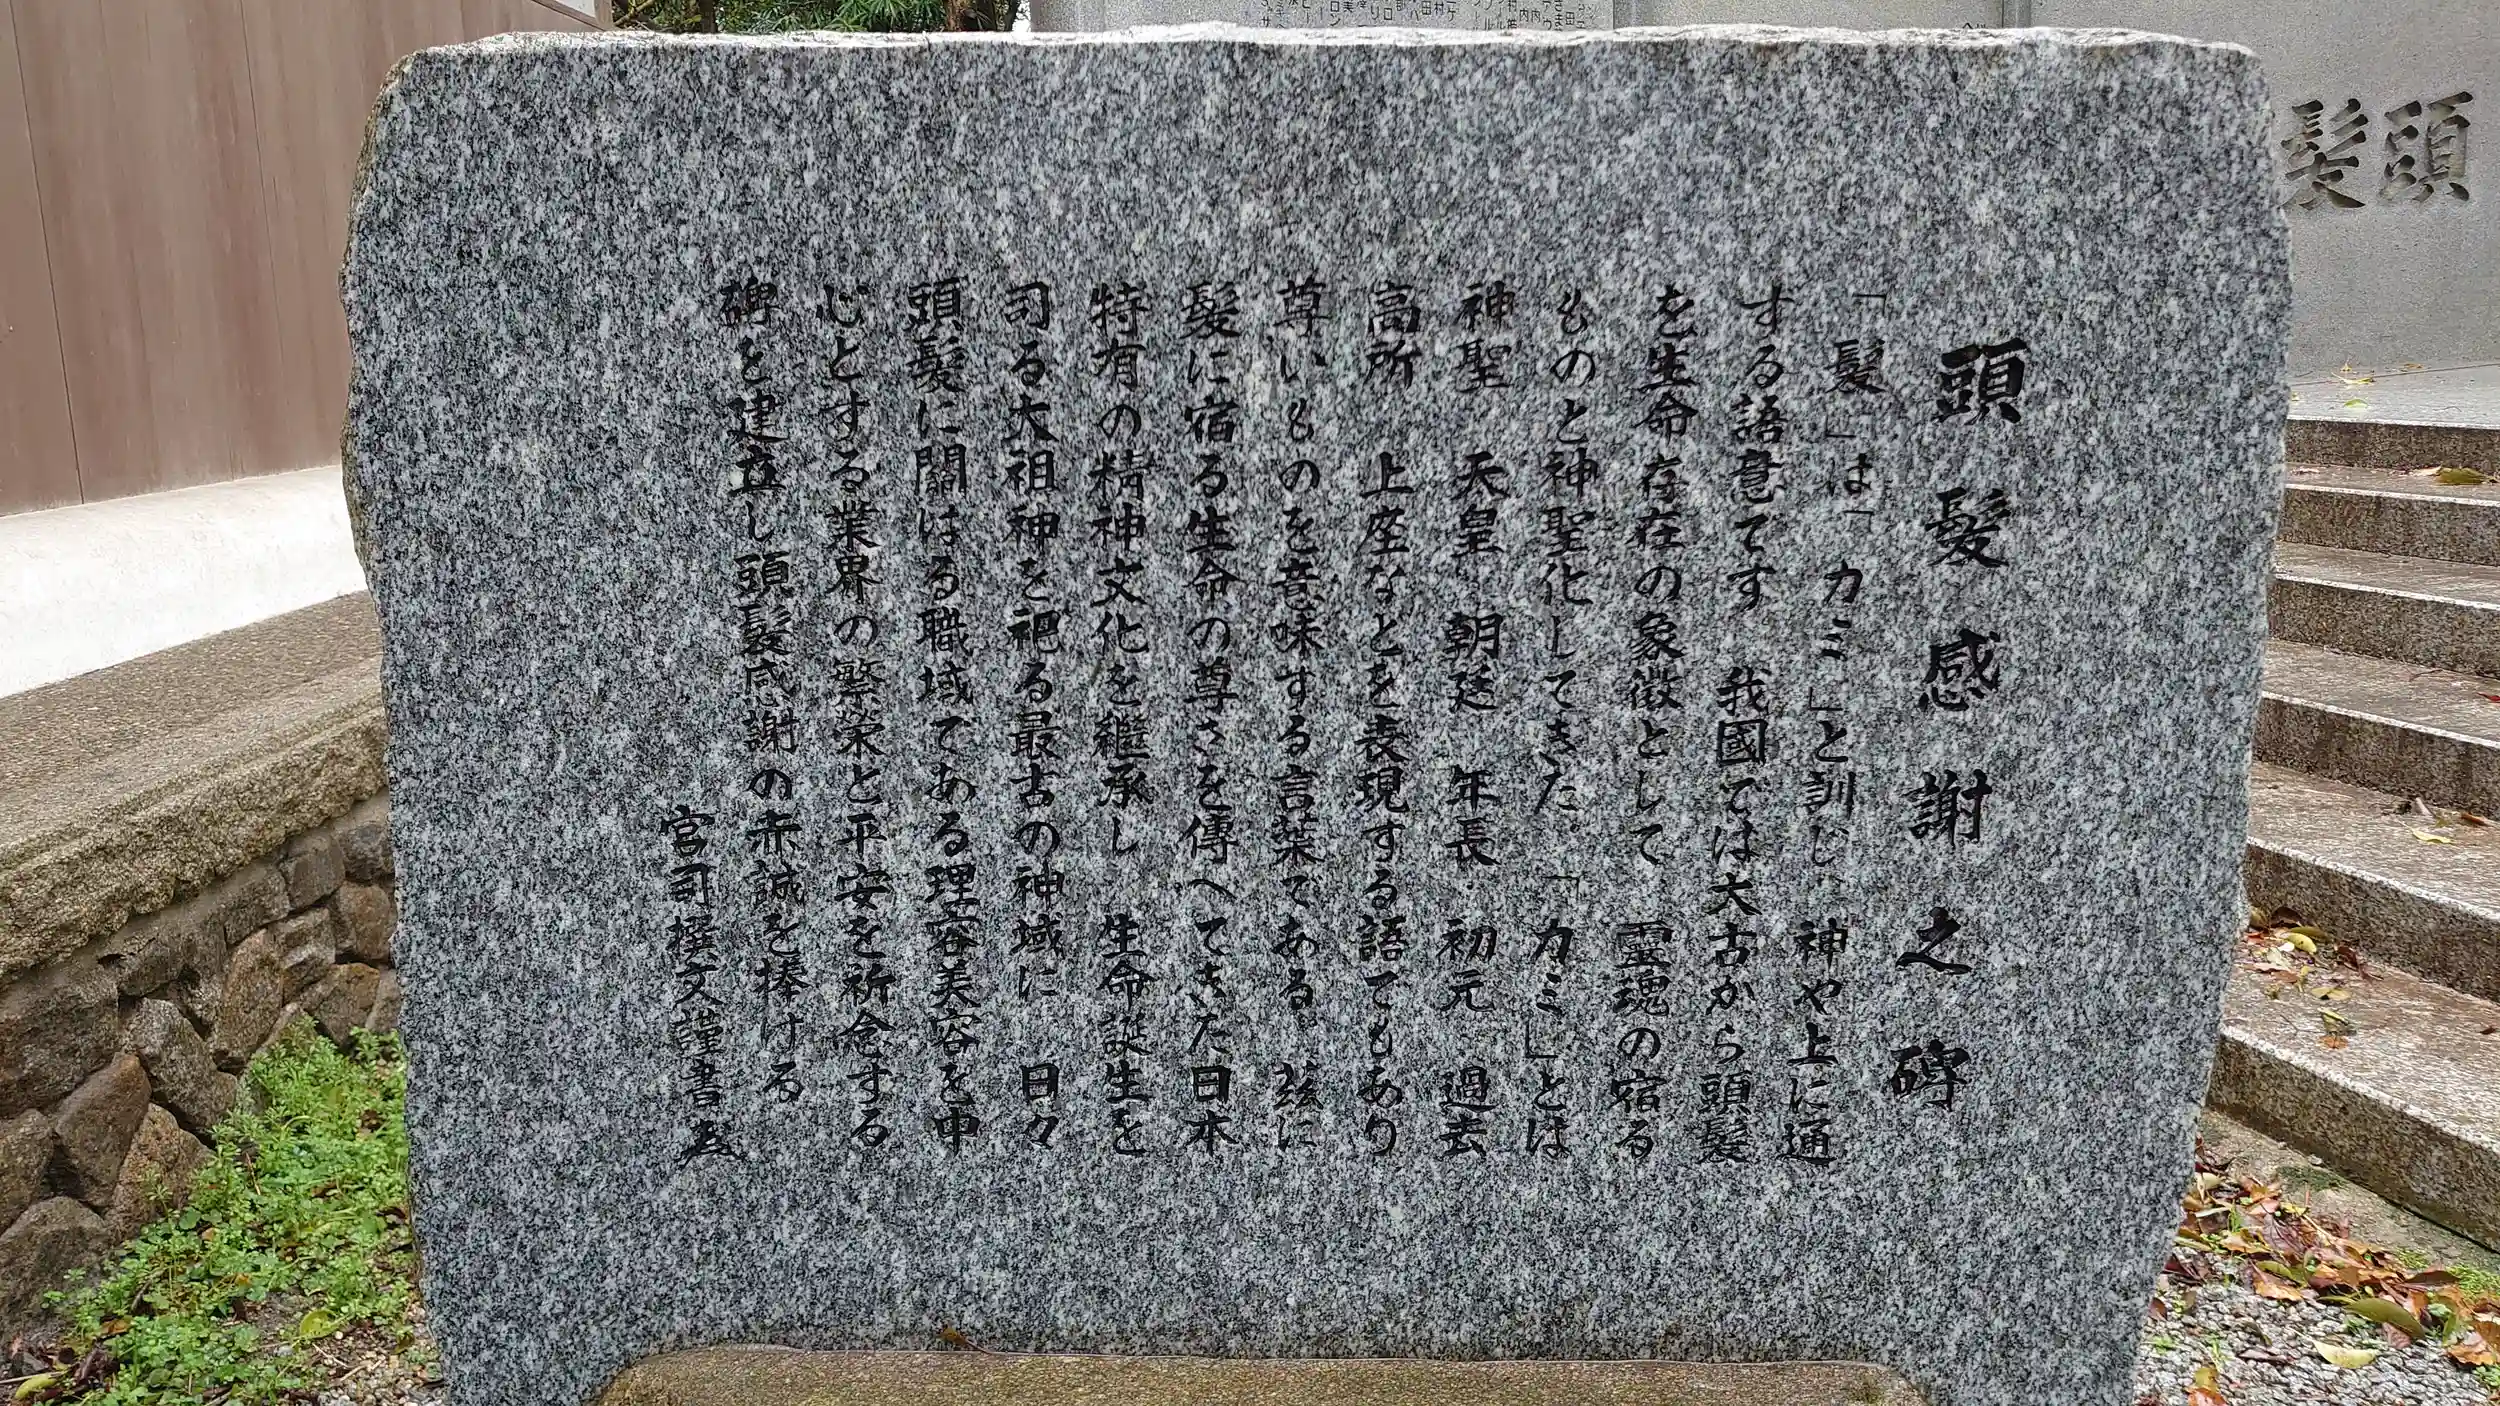 頭髪感謝之碑
「髪」は「カミ」と訓じ 神や上に通
する語意です 我國では太古から頭髪
を生命存在の象徴として 霊魂の宿る
ものと神聖化してきた。「カミ」とは
神聖 天皇 朝廷 年長 初元 過去
高所 上座などを表現する語でもあり
尊いものを意味する言葉である。茲に
髪に宿る生命の尊さを傳へてきた日本
特有の精神文化を継承し 生命誕生を
司る大祖神を祀る最古の神域に 日々
頭髪に關はる職域である理容美容を中
心とする業界の繁栄と平安を祈念する
碑を建立し頭髪感謝の赤誠を捧ける
宮司撰文謹書
頭髪